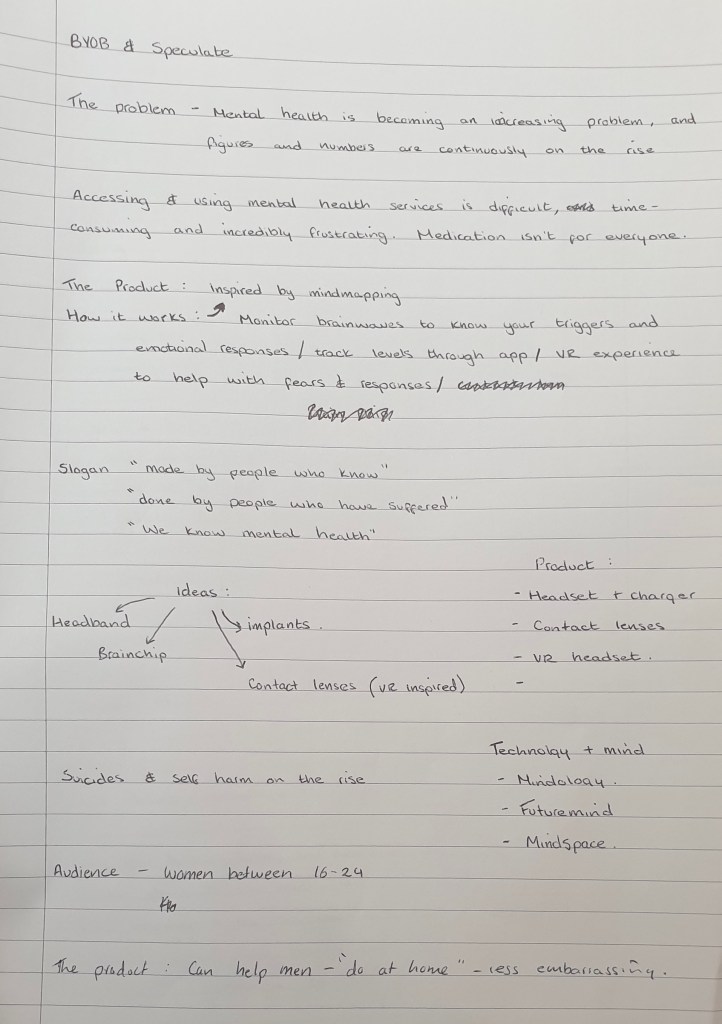 BYOB & Speculate
The problem - Mental health is becoming an increasing problem, and
figures and numbers are continuously on the rise
Accessing & using mental health services is difficult, time-
consuming and incredibly frustrating. Medication isn't for everyone.
The Product : Inspired by mindmapping
How it works : Monitor brainwaves to know your triggers and
emotional responses / track levels through app / VR experience
to help with fears & responses /
Slogan "made by people who know"
"done by people who have suffered"
"We know mental health"
Ideas :
Headband
Brainchip
implants.
Contact lenses (VR inspired)
Product :
- Headset + charger
- Contact lenses
- VR headset.
-
Technolgy + mind
- Mindology.
- Futuremind
- Mindspace.
Suicides & self harm on the rise
Audience - women between 16-24
The product : Can help men - "do at home" - less embarrassing.